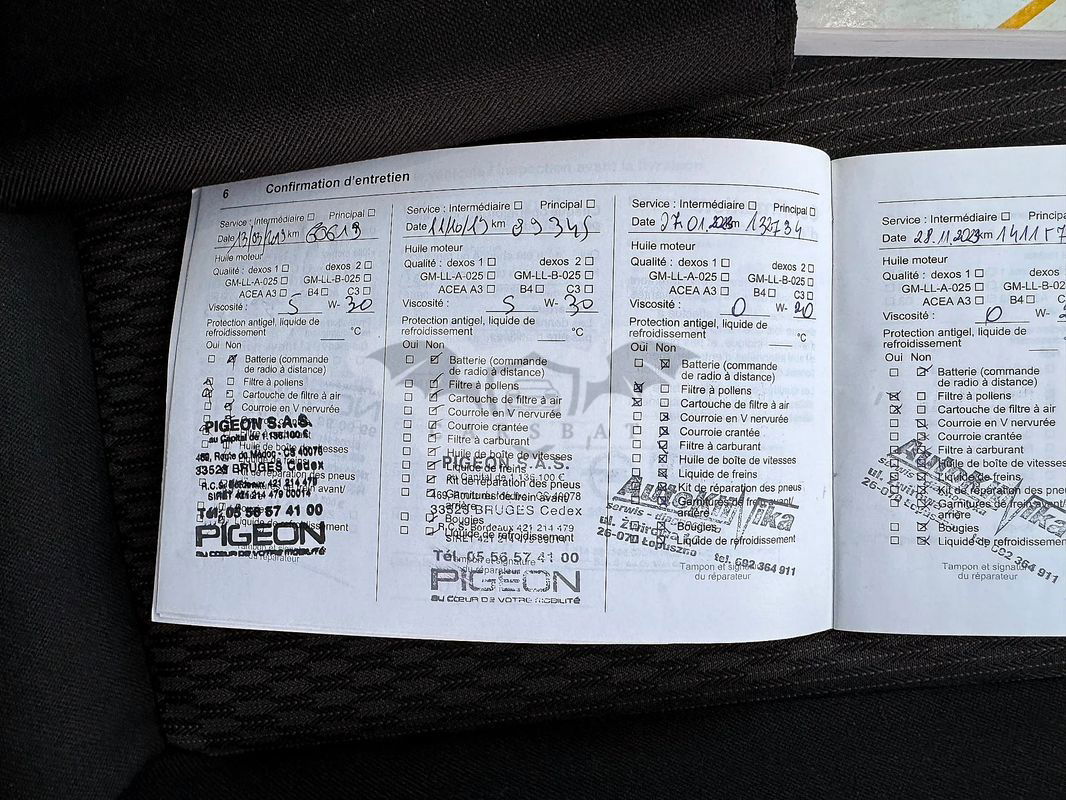 6 Confirmation d'entretien
Service : Intermédiaire Principal
Date 13/03/2019 km 60619
Huile moteur
Qualité : dexos 1 dexos 2
GM-LL-A-025 GM-LL-B-025
ACEA A3 B4 C3
Viscosité : 5 W- 30
Protection antigel, liquide de
refroidissement °C
Oui Non
Batterie (commande
de radio à distance)
Filtre à pollens
Cartouche de filtre à air
Courroie en V nervurée
PIGEON S.A.S.
au Capital de 1.136.100 €
Huile de boîte de vitesses
469, Route du Médoc - CS 40078
33523 BRUGES Cedex
Kit de réparation des pneus
R.C.S. Bordeaux 421 214 479
SIRET 421 214 479 00014
Tél. 05 56 57 41 00
Liquide de refroidissement
PIGEON
AU CŒUR DE VOTRE MOBILITÉ
Tampon et signature
du réparateur
Service : Intermédiaire Principal
Date 11/10/19 km 89345
Huile moteur
Qualité : dexos 1 dexos 2
GM-LL-A-025 GM-LL-B-025
ACEA A3 B4 C3
Viscosité : 5 W- 30
Protection antigel, liquide de
refroidissement °C
Oui Non
Batterie (commande
de radio à distance)
Filtre à pollens
Cartouche de filtre à air
Courroie en V nervurée
Courroie crantée
Filtre à carburant
Huile de boîte de vitesses
PIGEON S.A.S.
Liquide de freins
au Capital de 1.136.100 €
Kit de réparation des pneus
Garnitures de frein avant/
arrière
33523 BRUGES Cedex
Bougies
R.C.S. Bordeaux 421 214 479
Liquide de refroidissement
Tél. 05 56 57 41 00
Tampon et signature
du réparateur
PIGEON
AU CŒUR DE VOTRE MOBILITÉ
Service : Intermédiaire Principal
Date 27.01.2023 km 132734
Huile moteur
Qualité : dexos 1 dexos 2
GM-LL-A-025 GM-LL-B-025
ACEA A3 B4 C3
Viscosité : 0 W- 20
Protection antigel, liquide de
refroidissement °C
Oui Non
Batterie (commande
de radio à distance)
Filtre à pollens
Cartouche de filtre à air
Courroie en V nervurée
Courroie crantée
Filtre à carburant
Huile de boîte de vitesses
Liquide de freins
Kit de réparation des pneus
Garnitures de frein avant/
arrière
Bougies
Liquide de refroidissement
26-070 Łopuszno
tel. 692 364 911
Tampon et signature
du réparateur
Service : Intermédiaire Principal
Date 28.11.2023 km 141157
Huile moteur
Qualité : dexos 1 dexos
GM-LL-A-025 GM-LL-B-02
ACEA A3 B4 C3
Viscosité : 0 W-
Protection antigel, liquide de
refroidissement
Oui Non
Batterie (commande
de radio à distance)
Filtre à pollens
Cartouche de filtre à air
Courroie en V nervurée
Courroie crantée
Filtre à carburant
Huile de boîte de vitesses
Liquide de freins
Kit de réparation des pneus
Garnitures de frein avant/
arrière
Bougies
Liquide de refroidissement
692 364 911
Tampon et signature
du réparateur